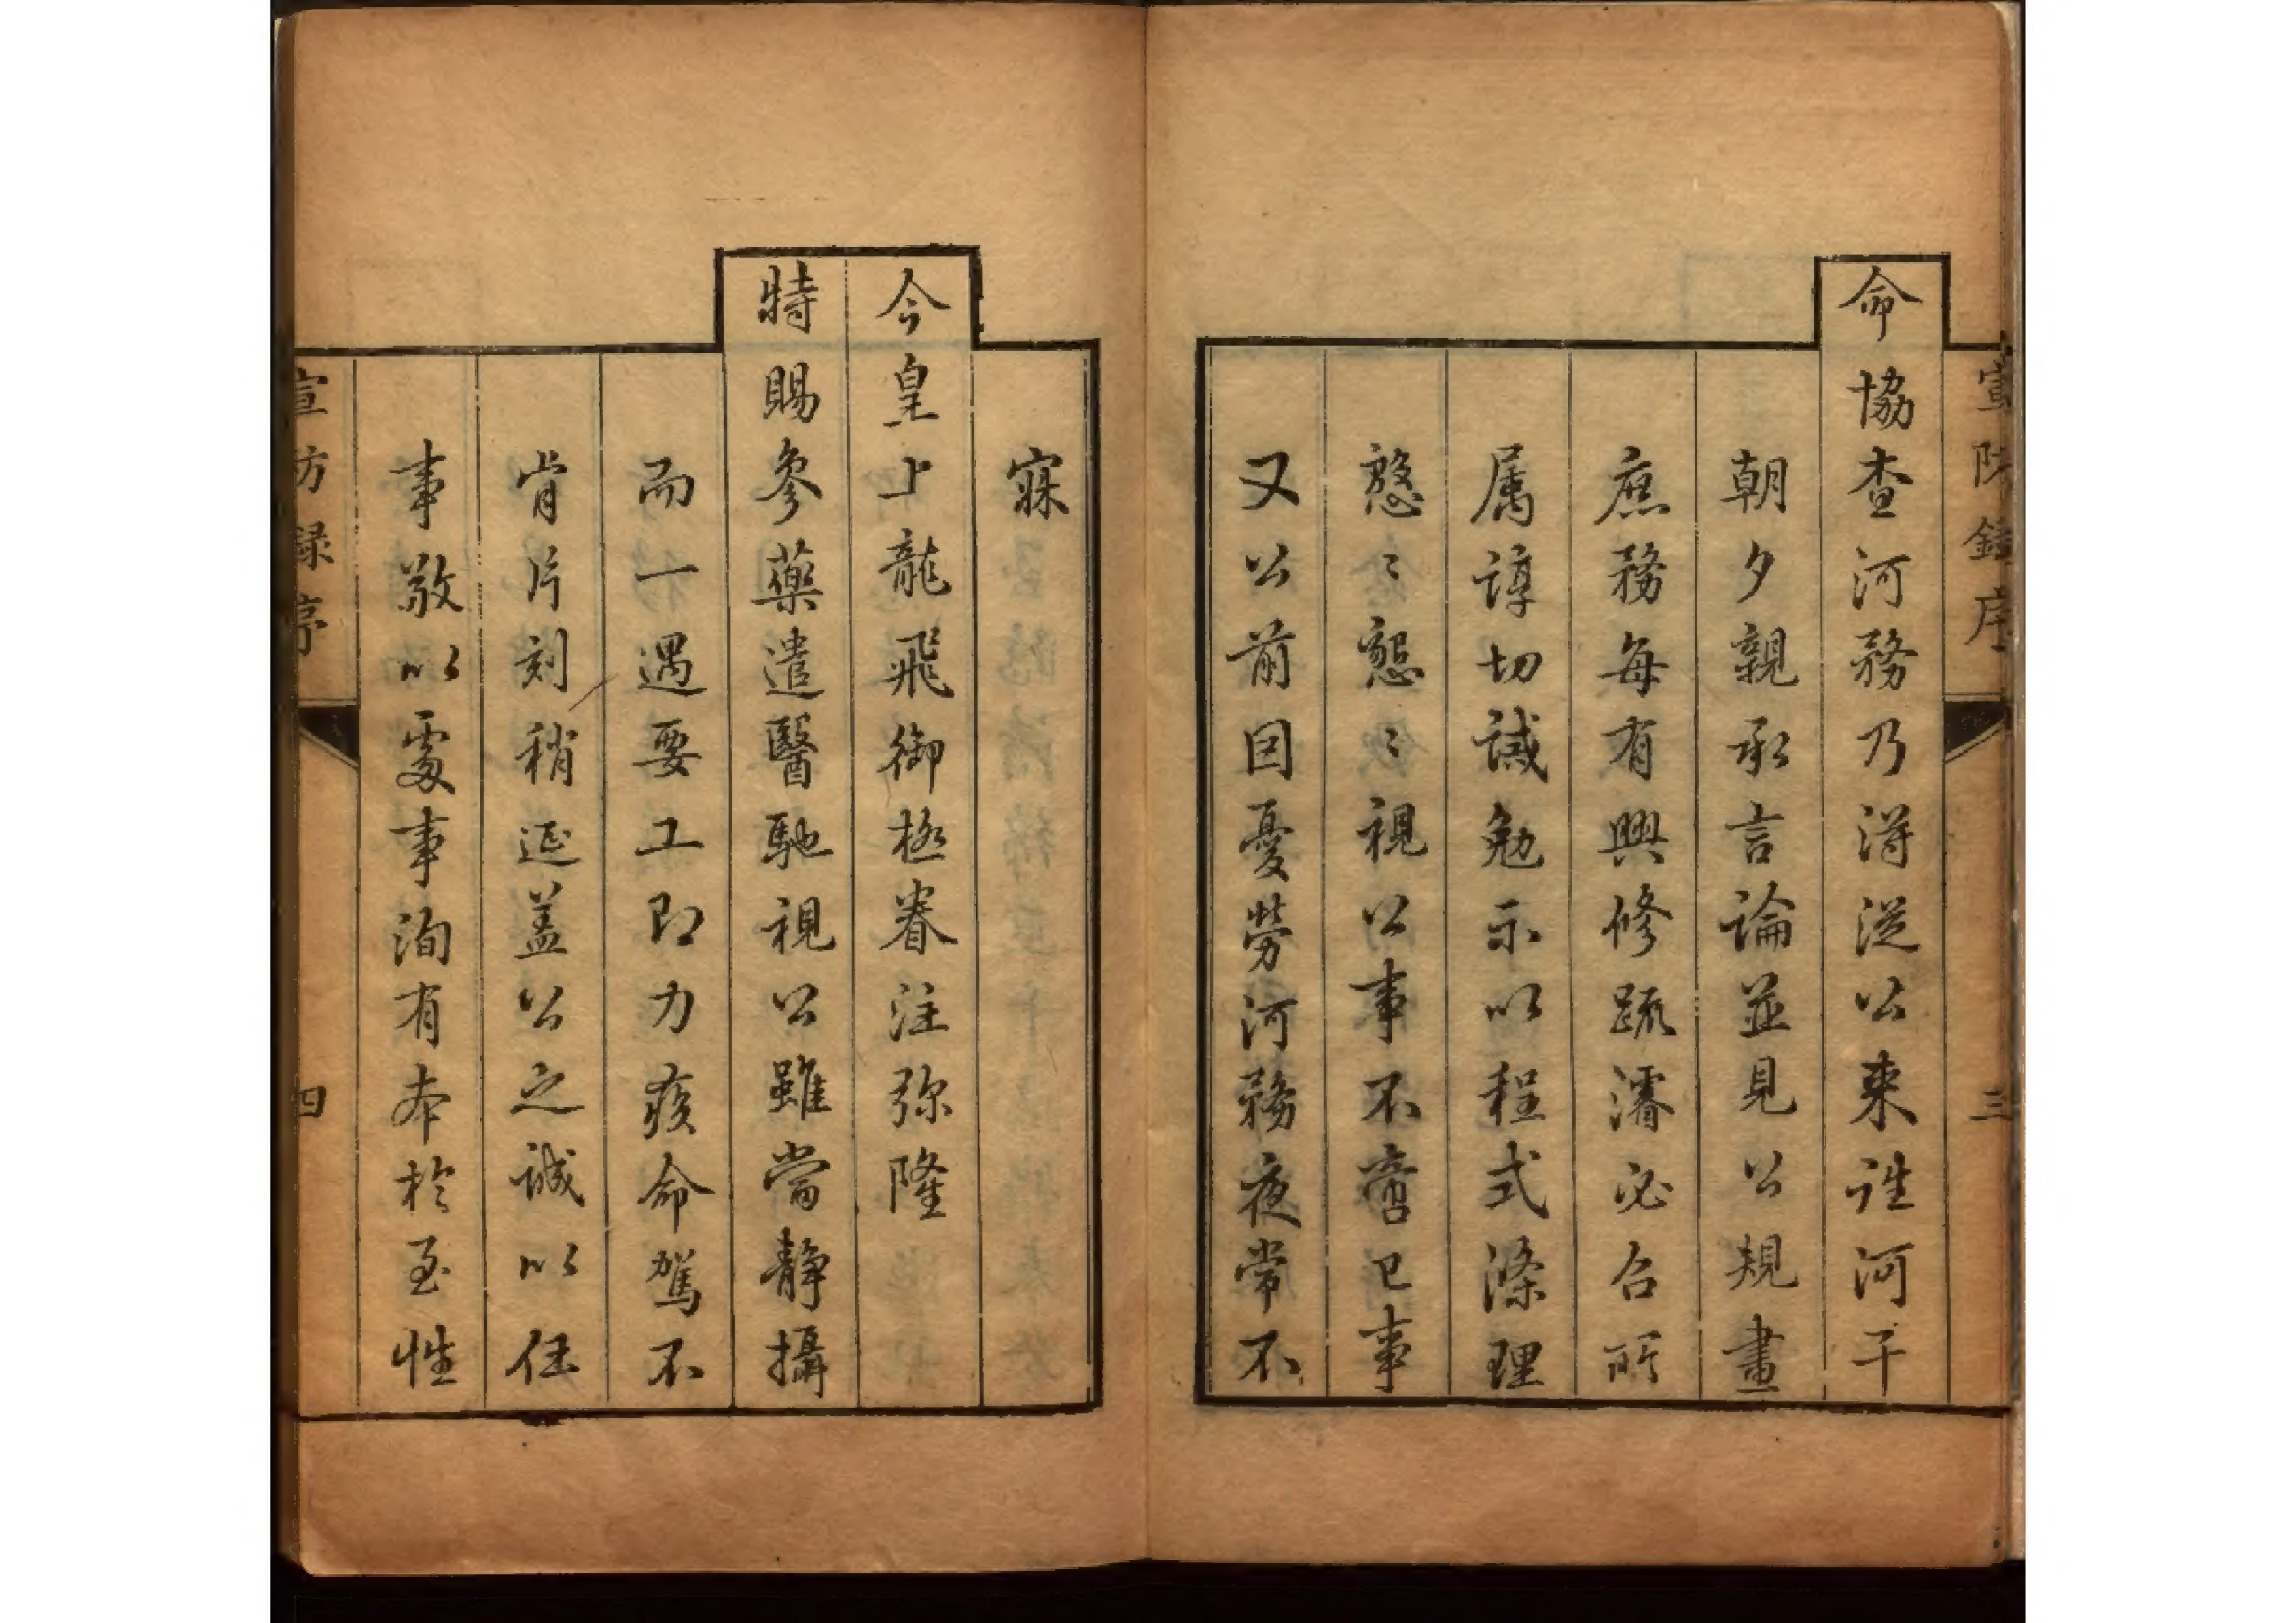 宣防錄序
三
命協查河務乃得從公來往河干
朝夕親承言論並見公規畫
庶務每有興修疏濬必召所
属諄切誡勉示以程式條理
慇〻懇〻視公事不啻己事
又公前因憂勞河務夜常不
寐
今皇上龍飛御極眷注弥隆
特賜參藥遣醫馳視公雖當靜攝
而一遇要工即力疾命駕不
肯片刻稍延盖公之誠以任
事敬以處事洵有本於至性
宣防録序
四